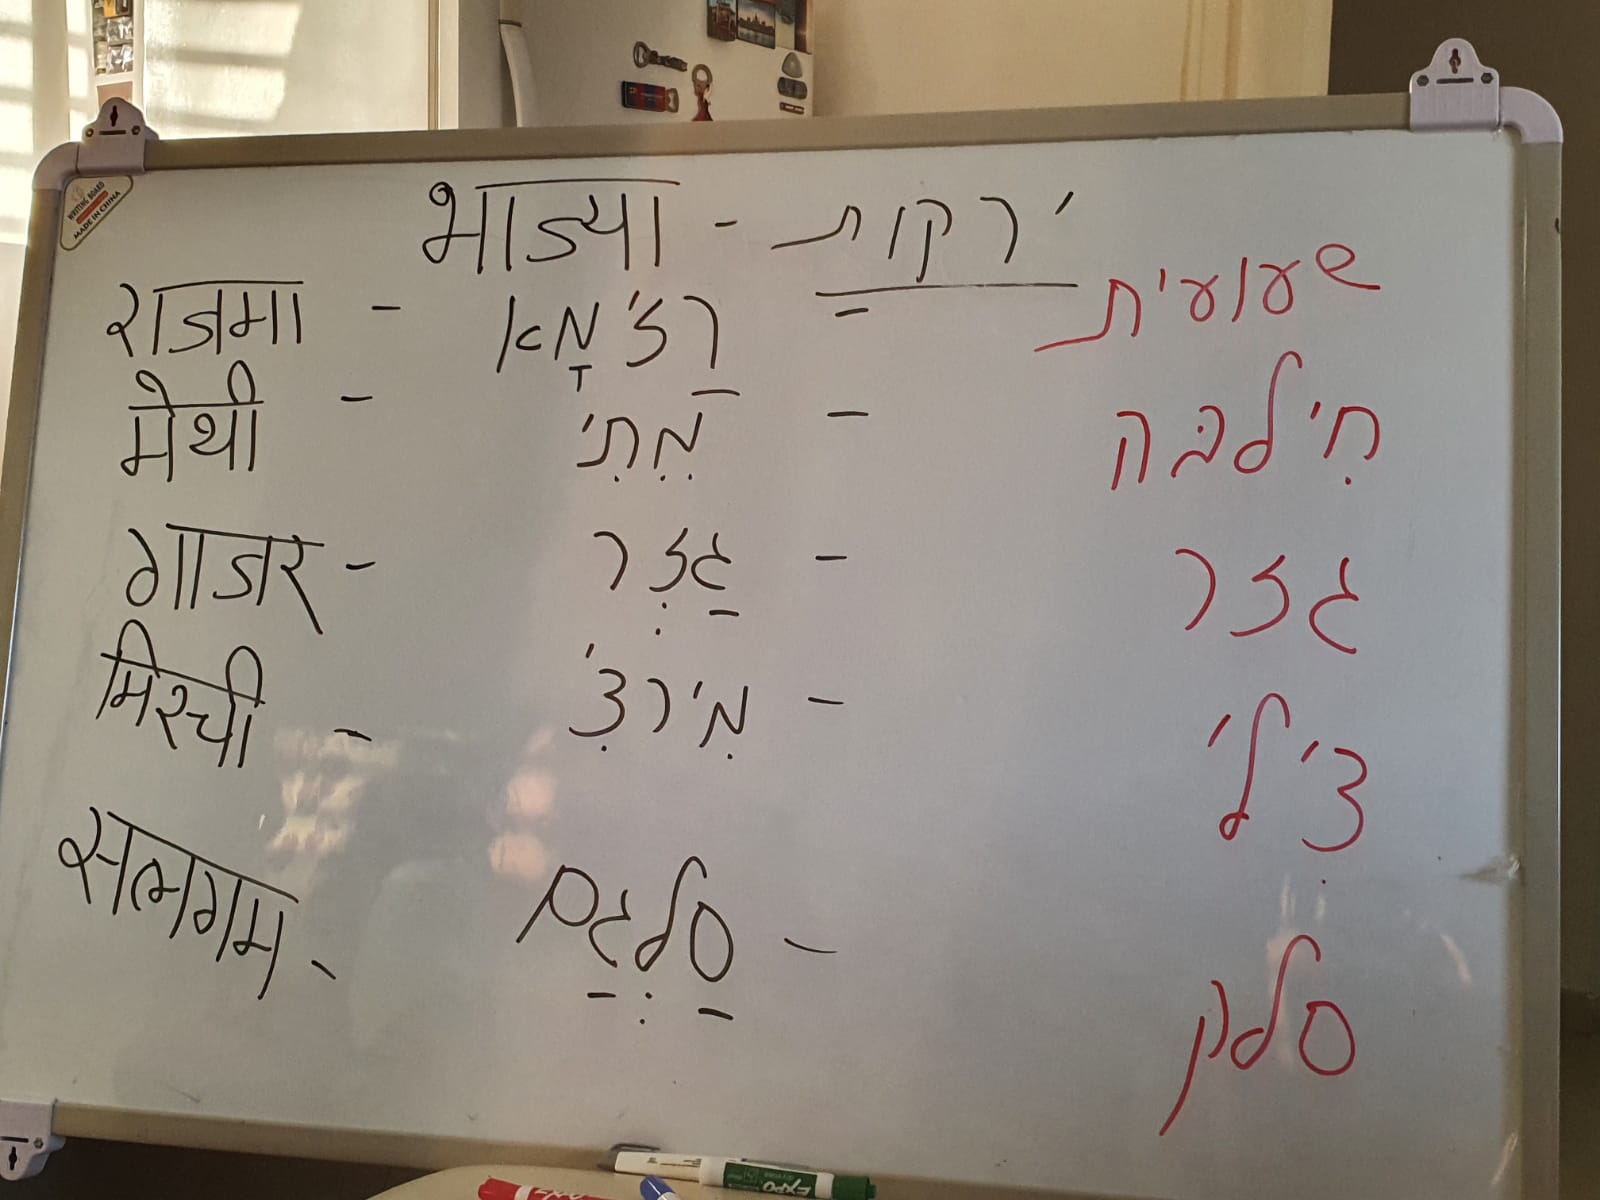 WRITING BOARD
MADE IN CHINA
भाज्या - ירקות
राजमा - רַז'מָא - שעועית
मेथी - מֵתִי - חִילבּה
गाजर - גַזְר - גזר
मिरची - מִירצִ' - צ'ילי
सलगम - סַלְגַם - סלק
EXPO